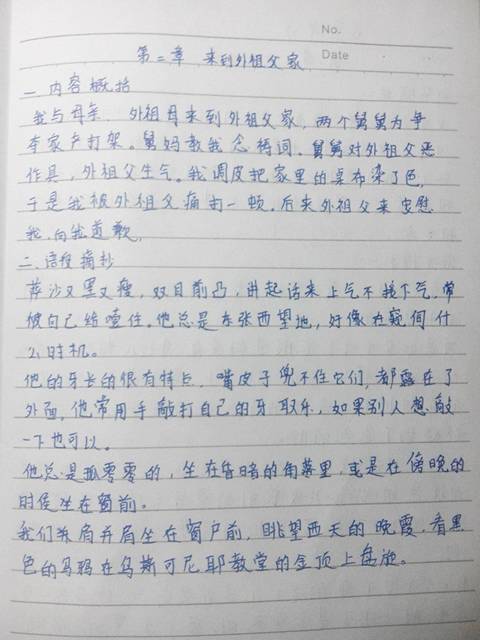 No.
Date
第二章 来到外祖父家
一 内容概括
我与母亲、外祖母来到外祖父家，两个舅舅为争
夺家产打架。舅妈教我念祷词。舅舅对外祖父恶
作具，外祖父生气。我调皮把家里的桌布染了色，
于是我被外祖父痛打一顿。后来外祖父来安慰
我，向我道歉，
二、语段摘抄
萨沙又黑又瘦，双目前凸，讲起话来上气不接下气，常
被自己给噎住。他总是东张西望地，好像在窥伺什
么时机。
他的牙长的很有特点，嘴皮子兜不住它们，都露在了
外面，他常用手敲打自己的牙取乐，如果别人想敲
一下也可以。
他总是孤零零的，坐在昏暗的角落里，或是在傍晚的
时侯坐在窗前。
我们来肩并肩坐在窗户前，眺望西天的晚霞，看黑
色的乌鸦在乌斯可尼耶教堂的金顶上盘旋。